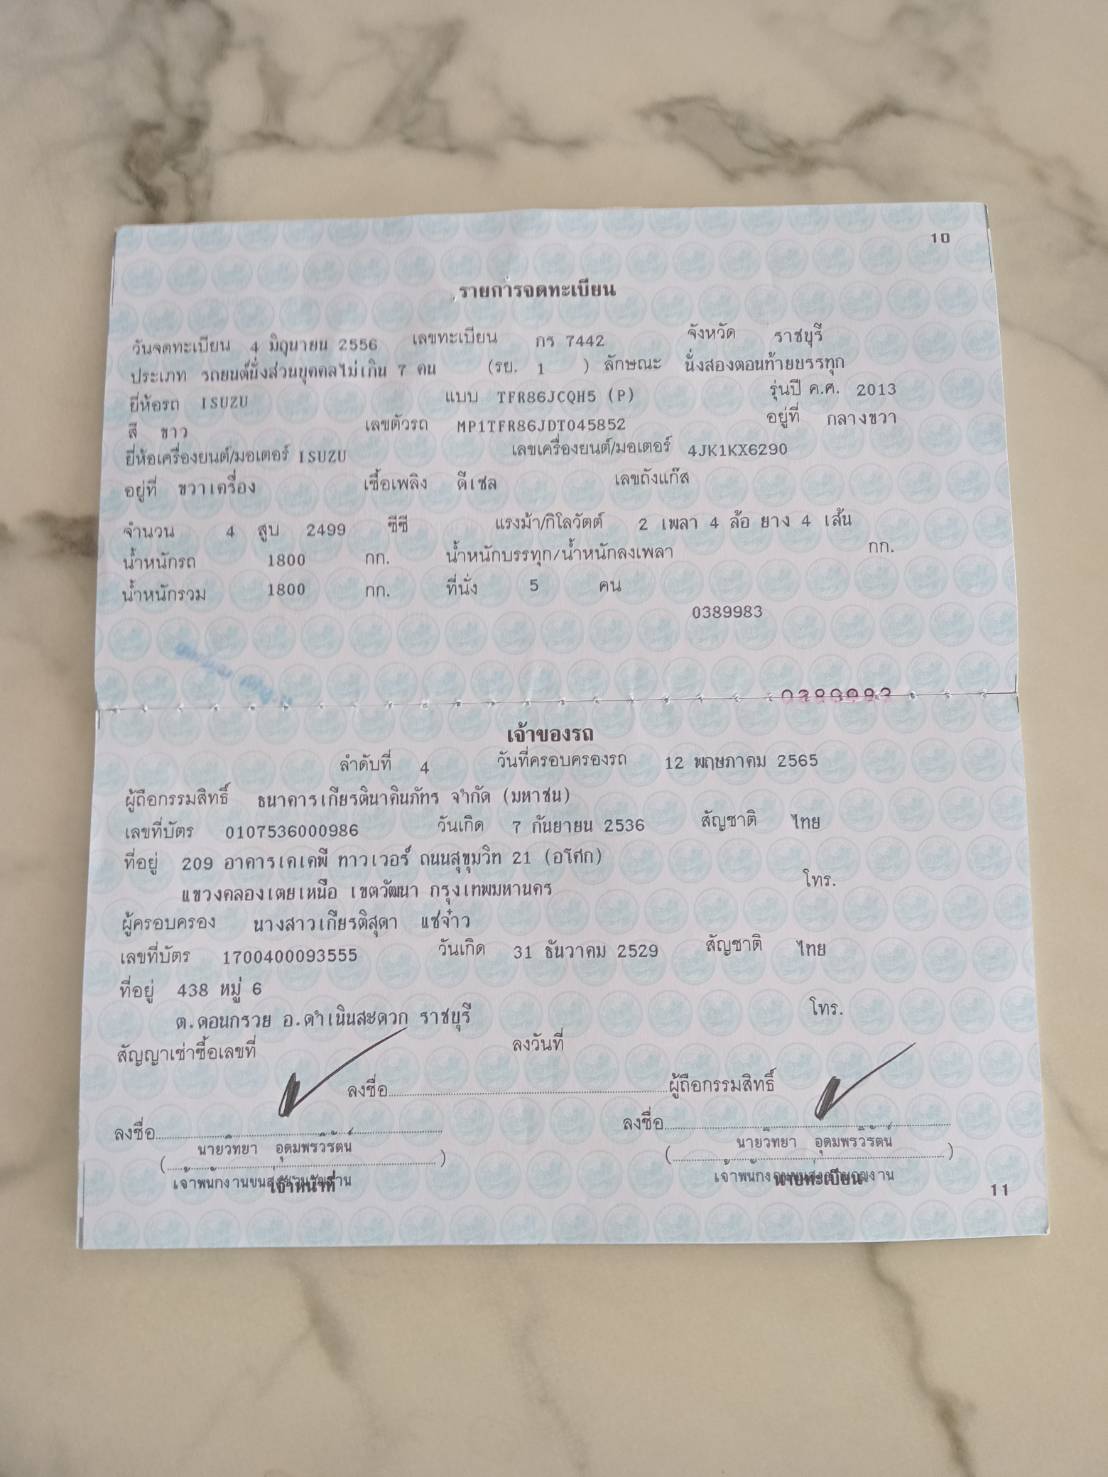 10
รายการจดทะเบียน
วันจดทะเบียน 4 มิถุนายน 2556 เลขทะเบียน กร 7442 จังหวัด ราชบุรี
ประเภท รถยนต์นั่งส่วนบุคคลไม่เกิน 7 คน (รย. 1 ) ลักษณะ นั่งสองตอนท้ายบรรทุก
ยี่ห้อรถ ISUZU แบบ TFR86JCQH5 (P) รุ่นปี ค.ศ. 2013
สี ขาว เลขตัวรถ MP1TFR86JDT045852 อยู่ที่ กลางขวา
ยี่ห้อเครื่องยนต์/มอเตอร์ ISUZU เลขเครื่องยนต์/มอเตอร์ 4JK1KX6290
อยู่ที่ ขวาเครื่อง เชื้อเพลิง ดีเซล เลขถังแก๊ส
จำนวน 4 สูบ 2499 ซีซี แรงม้า/กิโลวัตต์ 2 เพลา 4 ล้อ ยาง 4 เส้น
น้ำหนักรถ 1800 กก. น้ำหนักบรรทุก/น้ำหนักลงเพลา กก.
น้ำหนักรวม 1800 กก. ที่นั่ง 5 คน
0389983
0389983
เจ้าของรถ
ลำดับที่ 4 วันที่ครอบครองรถ 12 พฤษภาคม 2565
ผู้ถือกรรมสิทธิ์ ธนาคารเกียรตินาคินภัทร จำกัด (มหาชน)
เลขที่บัตร 0107536000986 วันเกิด 7 กันยายน 2536 สัญชาติ ไทย
ที่อยู่ 209 อาคารเคเคพี ทาวเวอร์ ถนนสุขุมวิท 21 (อโศก)
แขวงคลองเตยเหนือ เขตวัฒนา กรุงเทพมหานคร โทร.
ผู้ครอบครอง นางสาวเกียรติสุดา แซ่จ๋าว
เลขที่บัตร 1700400093555 วันเกิด 31 ธันวาคม 2529 สัญชาติ ไทย
ที่อยู่ 438 หมู่ 6
ต.ดอนกรวย อ.ดำเนินสะดวก ราชบุรี โทร.
สัญญาเช่าซื้อเลขที่ ลงวันที่
ลงชื่อ ผู้ถือกรรมสิทธิ์
ลงชื่อ ลงชื่อ
นายวิทยา อุดมพรวิรัตน์ นายวิทยา อุดมพรวิรัตน์
( ) ( )
เจ้าพนักงานขนส่งชำนาญงาน เจ้าพนักงานขนส่งชำนาญงาน
เจ้าหน้าที่ นายทะเบียน
11